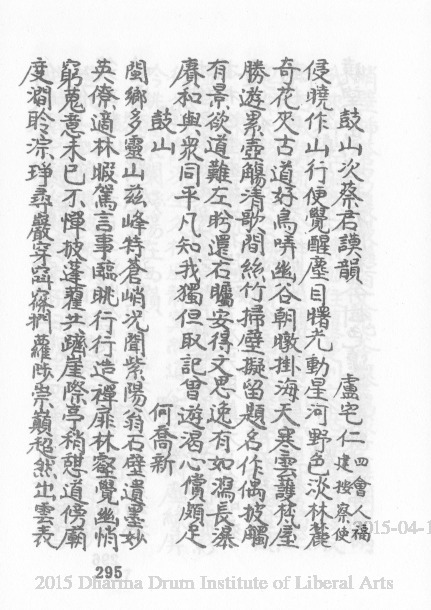 鼓山次蔡君謨韻　盧宅仁 四會人福建按察使
侵曉作山行便覺醒塵目曙光動星河野色淡林麓
奇花夾古道好鳥哢幽谷朝暾掛海天寒雲護梵屋
勝遊累壺觴清歌間絲竹掃壁擬留題名作偶披觸
有景欲道難左盻還右矚安得文思逸有如瀉長瀑
賡和與衆同平凡知我獨但取記曾遊渴心償頗足
鼓山　何喬新
閩鄉多靈山茲峰特蒼峭况聞紫陽翁石壁遺墨妙
英僚適林暇駕言事臨眺行行造禪扉林密覺幽悄
窮蒐意未已不憚披蓬藋共躋崖際亭稍憩道傍廟
度澗聆淙琤尋巖穿窈窱捫蘿陟崇巔超然出雲表
295
2015-04-1
2015 Dharma Drum Institute of Liberal Arts